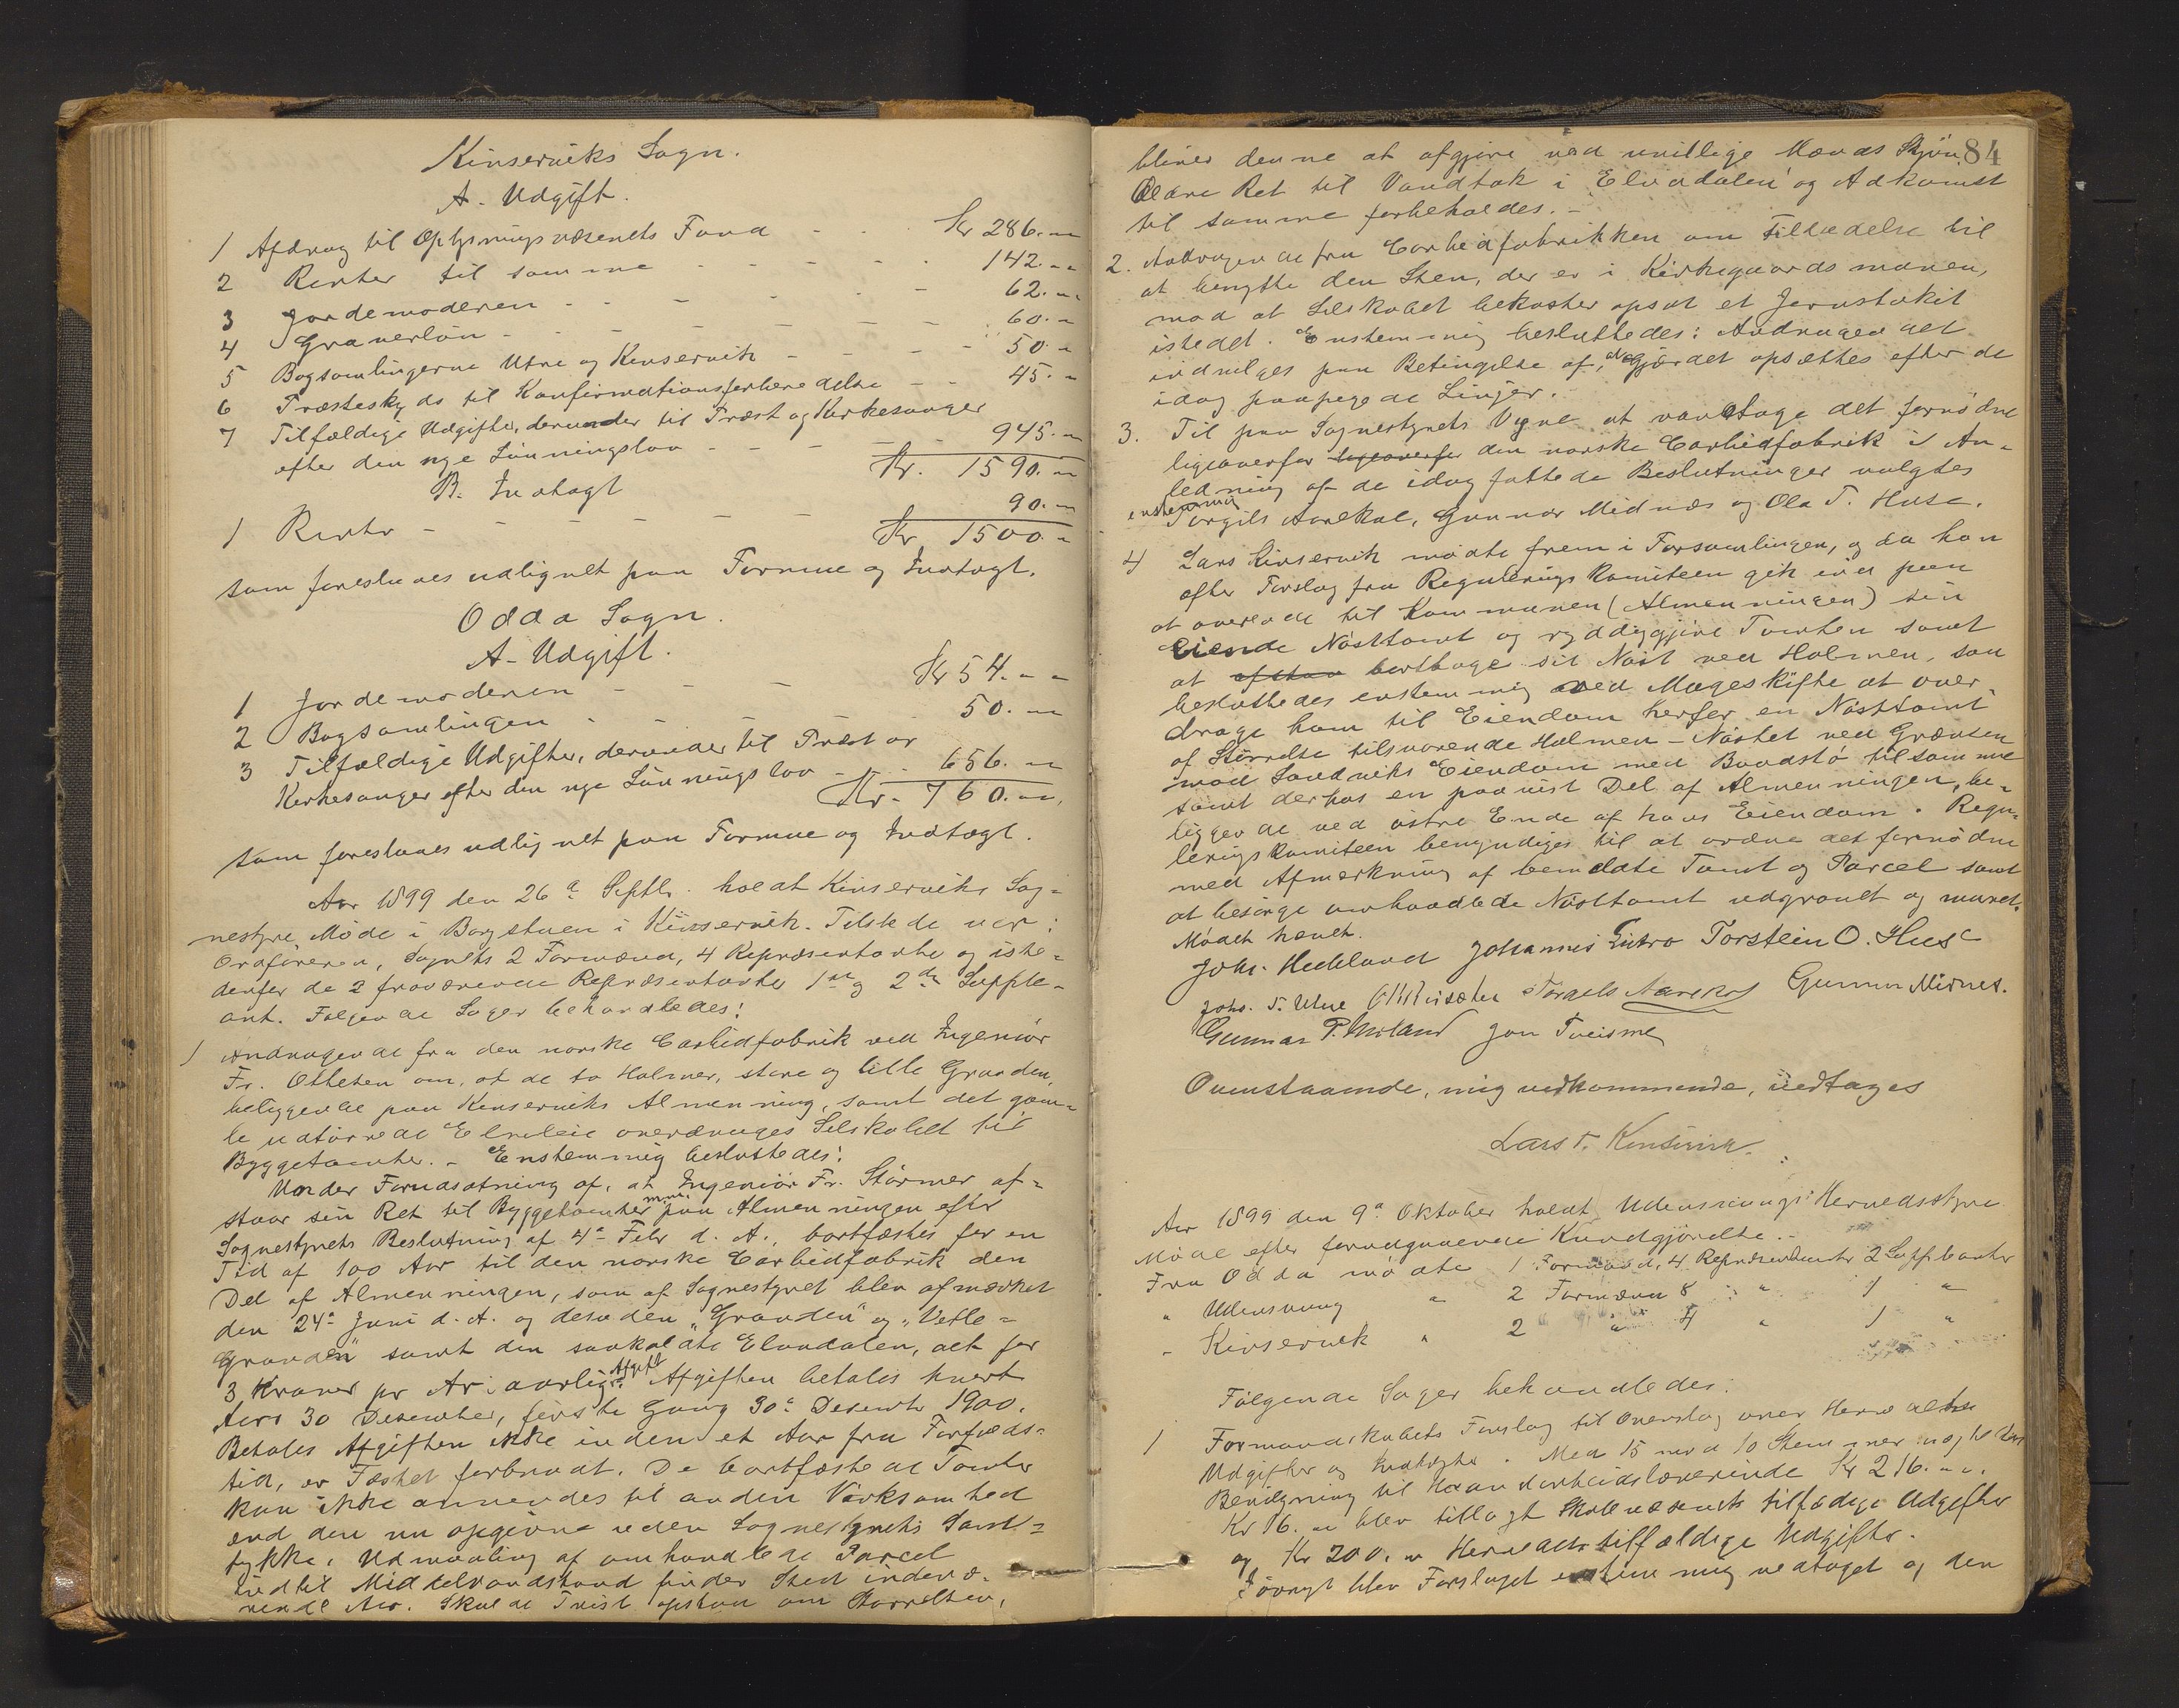 Kinserviks Sogn.
A. Udgift.
1 Afdrag til Oplysningsvæsenets Fond - - Kr 286.--
2 Renter til samme - - - - - 142.--
3 Jordemoderen - - - - - 62.--
4 Graverløn - - - - - 60.--
5 Bogsamlingerne Utne og Kinservik - - - - 50.--
6 Præsteskyds til Konfirmationsforberedelse - - 45.--
7 Tilfældige Udgifter, derunder til Præst og Kirkesanger
efter den nye Lønningslov - - - - 945.--
Kr. 1590.--
B. Indtægt
1 Renter - - - - - 90.--
Kr 1500.--
som foreslaaes udlignet paa Formue og Indtægt.
Odda Sogn.
A - Udgift.
1 Jordemoderen - - - Kr 54.--
2 Bogsamlingen - - - 50.--
3 Tilfældige Udgifter, derunder til Præst og
Kirkesanger efter den nye Lønningslov - - 656.--
Kr. 760.--
som foreslaaes udlignet paa Formue og Indtægt.
Aar 1899 den 26de Septbr. holdt Kinserviks Sog-
nestyre Møde i Borgstuen i Kinservik. Tilstede var:
Ordføreren, Sognets 2 Formænd, 4 Repræsentanter og iste-
denfor de 2 fraværende Repræsentanter 1ste og 2den Supple-
ant. Følgende Sager behandledes:
1 Andragende fra den norske Carbidfabrik ved Ingeniør
Fr. om, at de to Holmer, store og lille Granden,
beliggende paa Kinserviks Almenning, samt det gam-
le udtørrede Elveleie overdrages Selskabet til
Byggetomter. - Enstemmig besluttedes:
Under Forudsætning af, at Ingeniør Fr. Størmer af-
staar sin Ret til Byggetomter m.m. paa Almenningen efter
Sognestyrets Beslutning af 4de Febr d. A., bortfæstes for en
Tid af 100 Aar til den norske Carbidfabrik den
Del af Almenningen, som af Sognestyret blev afmærket
den 24de Juni d. A. og desuden "Granden" og "Vetle-
Granden" samt den saakaldte Elvadalen, alt for
3 Kroner pr Ar i aarlig Afgift. Afgiften betales hvert
Aars 30 Desember, første Gang 30te Desembr 1900.
Betales Afgiften ikke inden et Aar fra Forfalds-
tid, er Fæstet forbrudt. De bortfæstede Tomter
kan ikke anvendes til anden Virksomhed
end den nu opgivne uden Sognestyrets Sam-
tykke. Udmaaling af omhandlede Parcel
indtil Middelvandstand finder Sted indevæ-
rende Aar. Skulde Tvist opstaa om Størrelsen,
84
bliver denne at afgjøre ved uvillige Mænds Skjøn.
Ældre Ret til Vandtak i "Elvadalen" og Adkomst
til samme forbeholdes. -
2. Andragende fra Carbidfabrikken om Tilladelse til
at benytte den Sten, der er i Kirkegaardsmuren,
mod at Selskabet bekoster opsat et Jernstakit
istedet. Enstemmig besluttedes: Andragendet
indvilges paa Betingelse af, at Gjærdet opsættes efter de
idag paapegede Linjer.
3. Til paa Sognestyrets Vegne at varetage det fornødne
ligeoverfor ligeoverfor den norske Carbidfabrik i An-
ledning af de idag fattede Beslutninger valgtes
enstemmig
Torgils Aarekol, Gunnar Midnes og Ola T. Huse.
4 Lars Kinservik mødte frem i Forsamlingen, og da han
efter Forslag fra Reguleringskomiteen gik ind paa
at overlade til Kommunen (Almenningen) sin
eiende Nøsttomt og ryddiggjøre Tomten samt
at afstaa borttage sit Nøst ved Holmen, saa
besluttedes enstemmig ved Mageskifte at over-
drage ham til Eiendom herfor en Nøsttomt
af Størrelse tilsvarende Holmen-Nøstet ved Grænsen
mod Sandviks Eiendom med Baadstø til samme
samt derhos en paavist Del af Almenningen, be-
liggende ved østre Ende af hans Eiendom. Regu-
leringskomiteen bemyndiges til at ordne det fornødne
med Afmerkning af bemeldte Tomt og Parcel samt
at besørge omhandlede Nøsttomt udgravet og muret.
Mødet hævet.
Johs. Helleland Johannes Lutro Torstein O. Huse
Johs. T. Utne Torgils Aarekol Gunnar Midnes.
Gunnar P. Moland Jon Tveisme
Ovenstaaende, mig vedkommende, vedtages
Lars T. Kinservik.
Aar 1899 den 9de Oktober holdt Ullensvangs Herredsstyre
Møde efter forudgaaende Kundgjørelse. -
Fra Odda mødte 1 Formand, 4 Repræsentanter 2 Suppleanter
" Ullensvang " 2 Formænd 8 " 1 "
- Kinservik " 2 " 4 " 1 "
Følgende Sager behandledes:
1 Formandskabets Forslag til Overslag over Herredets
Udgifter og Indtægter. Med 15 mod 10 Stemmer
Bevilgning til Haandarbeidslærerinde Kr 216.--.
Kr 16.-- blev tillagt Skolevæsenets tilfældige Udgifter
og Kr 200.-- Herredets tilfældige Udgifter.
Iøvrigt blev Forslaget enstemmig vedtaget og den